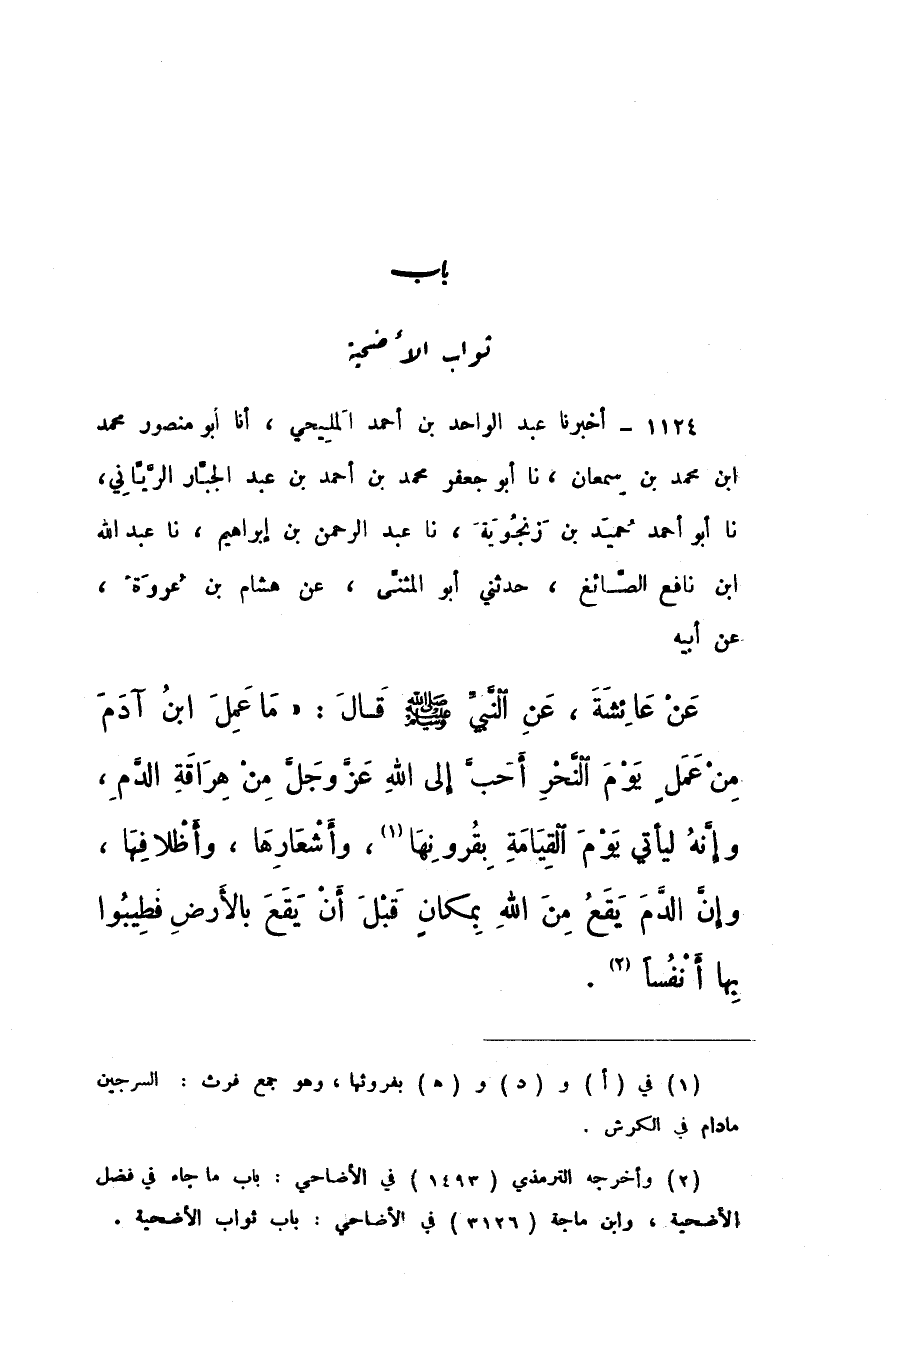 باب
ثواب الأضحية
١١٢٤ – أخبرنا عبد الواحد بن أحمد المَلِيحي ، أنا أبو منصور محمد
ابن محمد بن سِمعان ، نا أبو جعفر محمد بن أحمد بن عبد الجبَّار الريَّاني ،
نا أبو أحمد حُميَد بن زَنجُويَةَ ، نا عبد الرحمن بن إبراهيم ، نا عبد الله
ابن نافع الصَّائغ ، حدثني أبو المثنَّى ، عن هشام بن عُروَةَ ،
عن أبيه
عَنْ عَائِشَةَ ، عَنِ ٱلنَّبيِّ ﷺ قَالَ : « مَا عَمِلَ ابنُ آدَمَ
مِنْ عَمَلٍ يَوْمَ ٱلنَّحْرِ أَحَبَّ إلى اللهِ عَزَّ وَجَلَّ مِنْ هِرَاقَةِ الدَّمِ ،
وإنَّهُ ليأتي يَوْمَ ٱلقِيَامَةِ بِقُرونِهَا (١) ، وأَشْعَارِهَا ، وأَظْلافِهَا ،
وإنَّ الدَّمَ يَقَعُ مِنَ اللهِ بِمكانٍ قَبْلَ أَنْ يَقَعَ بالأَرضِ فَطِيبُوا
بِها أَنْفُساً (٢) .
(١) في ( أ ) و ( د ) و ( ه ) بفروثها ، وهو جمع فرث : السرجين
مادام في الكرش .
(٢) وأخرجه الترمذي ( ١٤٩٣ ) في الأضاحي : باب ما جاء في فضل
الأضحية ، وابن ماجة ( ٣١٢٦ ) في الأضاحي : باب ثواب الأضحية .